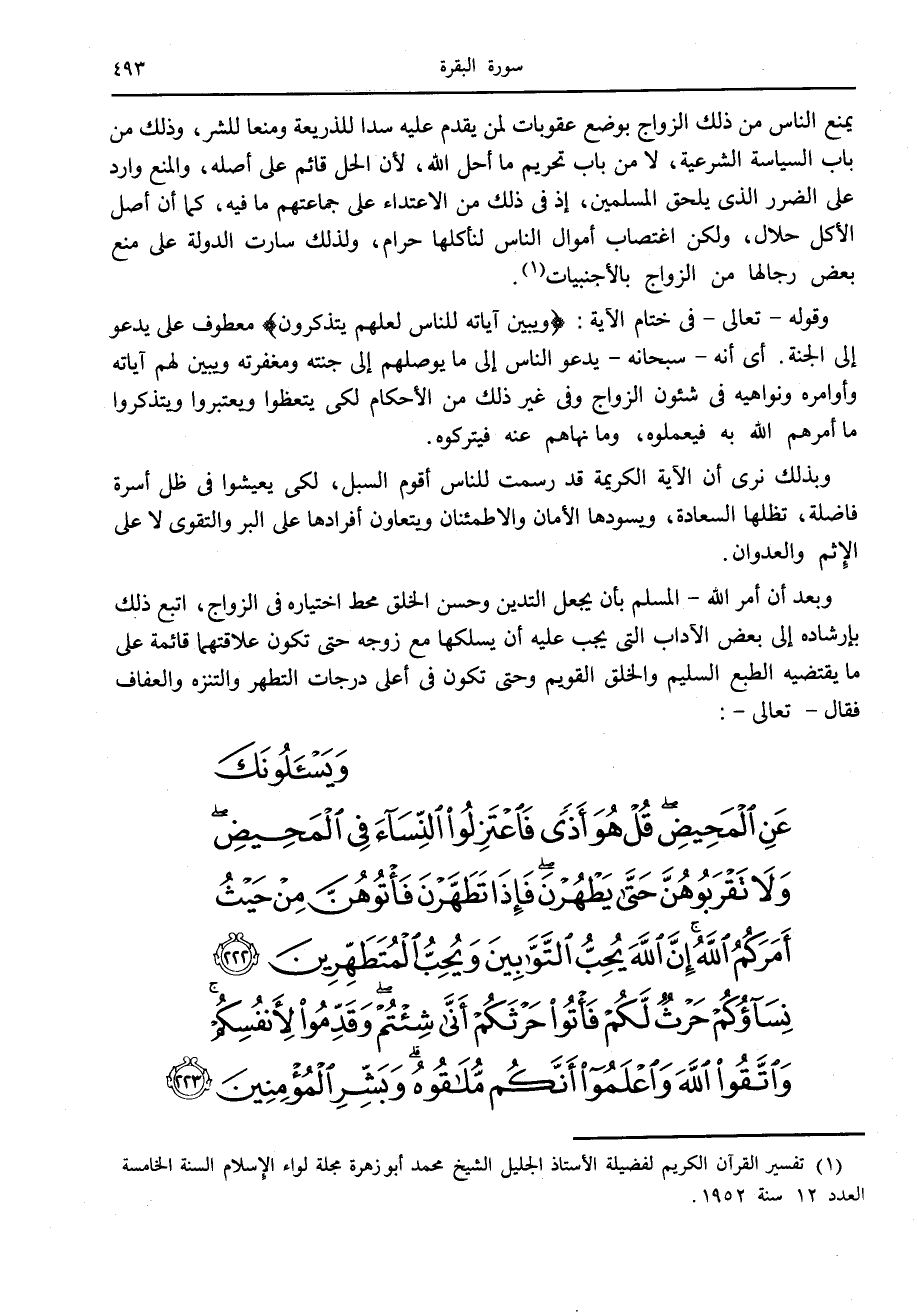 سورة البقرة ٤٩٣
يمنع الناس من ذلك الزواج بوضع عقوبات لمن يقدم عليه سدا للذريعة ومنعا للشر، وذلك من
باب السياسة الشرعية، لا من باب تحريم ما أحل الله، لأن الحل قائم على أصله، والمنع وارد
على الضرر الذى يلحق المسلمين، إذ فى ذلك من الاعتداء على جماعتهم ما فيه، كما أن أصل
الأكل حلال، ولكن اغتصاب أموال الناس لنأكلها حرام، ولذلك سارت الدولة على منع
بعض رجالها من الزواج بالأجنبيات(١).
وقوله - تعالى - فى ختام الآية : ﴿ويبين آياته للناس لعلهم يتذكرون﴾ معطوف على يدعو
إلى الجنة. أى أنه - سبحانه - يدعو الناس إلى ما يوصلهم إلى جنته ومغفرته ويبين لهم آياته
وأوامره ونواهيه فى شئون الزواج وفى غير ذلك من الأحكام لكى يتعظوا ويعتبروا ويتذكروا
ما أمرهم الله به فيعملوه، وما نهاهم عنه فيتركوه.
وبذلك نرى أن الآية الكريمة قد رسمت للناس أقوم السبل، لكى يعيشوا فى ظل أسرة
فاضلة، تظلها السعادة، ويسودها الأمان والاطمئنان ويتعاون أفرادها على البر والتقوى لا على
الإثم والعدوان.
وبعد أن أمر الله - المسلم بأن يجعل التدين وحسن الخلق محط اختياره فى الزواج، اتبع ذلك
بإرشاده إلى بعض الآداب التى يجب عليه أن يسلكها مع زوجه حتى تكون علاقتهما قائمة على
ما يقتضيه الطبع السليم والخلق القويم وحتى تكون فى أعلى درجات التطهر والتنزه والعفاف
فقال - تعالى - :
وَيَسْـَٔلُونَكَ
عَنِ ٱلْمَحِيضِ ۖ قُلْ هُوَ أَذًى فَٱعْتَزِلُوا۟ ٱلنِّسَآءَ فِى ٱلْمَحِيضِ ۖ
وَلَا تَقْرَبُوهُنَّ حَتَّىٰ يَطْهُرْنَ ۖ فَإِذَا تَطَهَّرْنَ فَأْتُوهُنَّ مِنْ حَيْثُ
أَمَرَكُمُ ٱللَّهُ ۚ إِنَّ ٱللَّهَ يُحِبُّ ٱلتَّوَّٰبِينَ وَيُحِبُّ ٱلْمُتَطَهِّرِينَ ٢٢٢
نِسَآؤُكُمْ حَرْثٌ لَّكُمْ فَأْتُوا۟ حَرْثَكُمْ أَنَّىٰ شِئْتُمْ ۖ وَقَدِّمُوا۟ لِأَنفُسِكُمْ ۚ
وَٱتَّقُوا۟ ٱللَّهَ وَٱعْلَمُوٓا۟ أَنَّكُم مُّلَٰقُوهُ ۗ وَبَشِّرِ ٱلْمُؤْمِنِينَ ٢٢٣
(١) تفسير القرآن الكريم لفضيلة الأستاذ الجليل الشيخ محمد أبو زهرة مجلة لواء الإسلام السنة الخامسة
العدد ١٢ سنة ١٩٥٢.